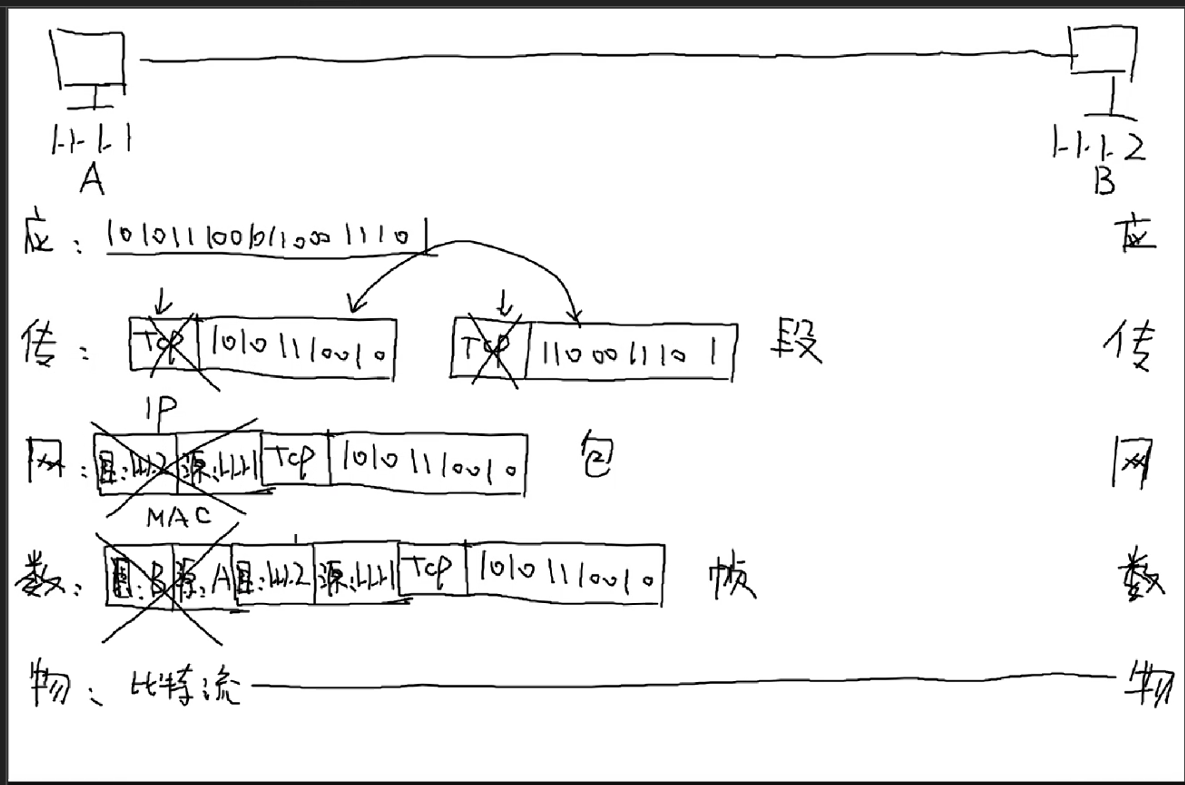 1.1.1.1 1.1.1.2
A B
应: 10101110010110001111 0 1 应
传: TCP 1010111001 0 TCP 110001110 1 段 传
IP
网: 目:1.1.1.2 源:1.1.1.1 TCP 1010111001 0 包 网
MAC
数: 目:B 源:A 目:1.1.1.2 源:1.1.1.1 TCP 1010111001 0 帧 数
物: 比特流 物